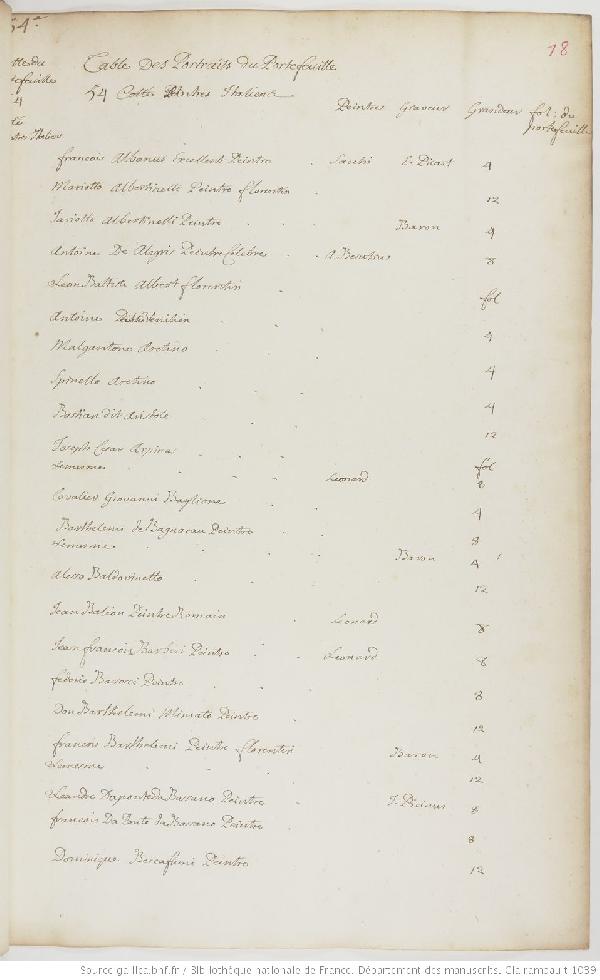 54e
18
tte du
tefeuille
4
tte
tres Italien
Table Des Portraits du Portefeuille
54 Cotté Peintres Italiens
Peintres Graveur Grandeur fol: du
portefeuille
francois Albanus Excellent Peintre Sacchi 4
Mariotto Albertinelli Peintre florentin 12
Jariotto Albertinelli Peintre Baron 4
Antoine De Alegris Peintre Celebre 8
Lean Battiste Albert florentin fol
Antoine Venitien 4
Malgantone Aretino 4
Spinello Aretino 4
Bastian dit Aristole 12
Joseph Cesar Arpinas fol
Lemesme Leonard 8
Cavalier Giovanni Baglione 4
Barthelemi de Bagnacau Peintre 8
Lemesme Baron 4
Alexo Baldovinetto 12
Jean Balion Peintre Romain Leonard 8
Jean francois Barbieri Peintre Leonard 8
federic Barocci Peintre 8
Don Barthelemi Miniato Peintre 12
francois Barthelemi Peintre florentin Baron 4
Lemesme 12
Leandre Daponte da Bassano Peintre J. Picinus 8
francois Da Ponte da Bassano Peintre 8
Dominique Beccafumi Peintre 12
Source gallica.bnf.fr / Bibliothèque nationale de France. Département des manuscrits. Clairambault 1039